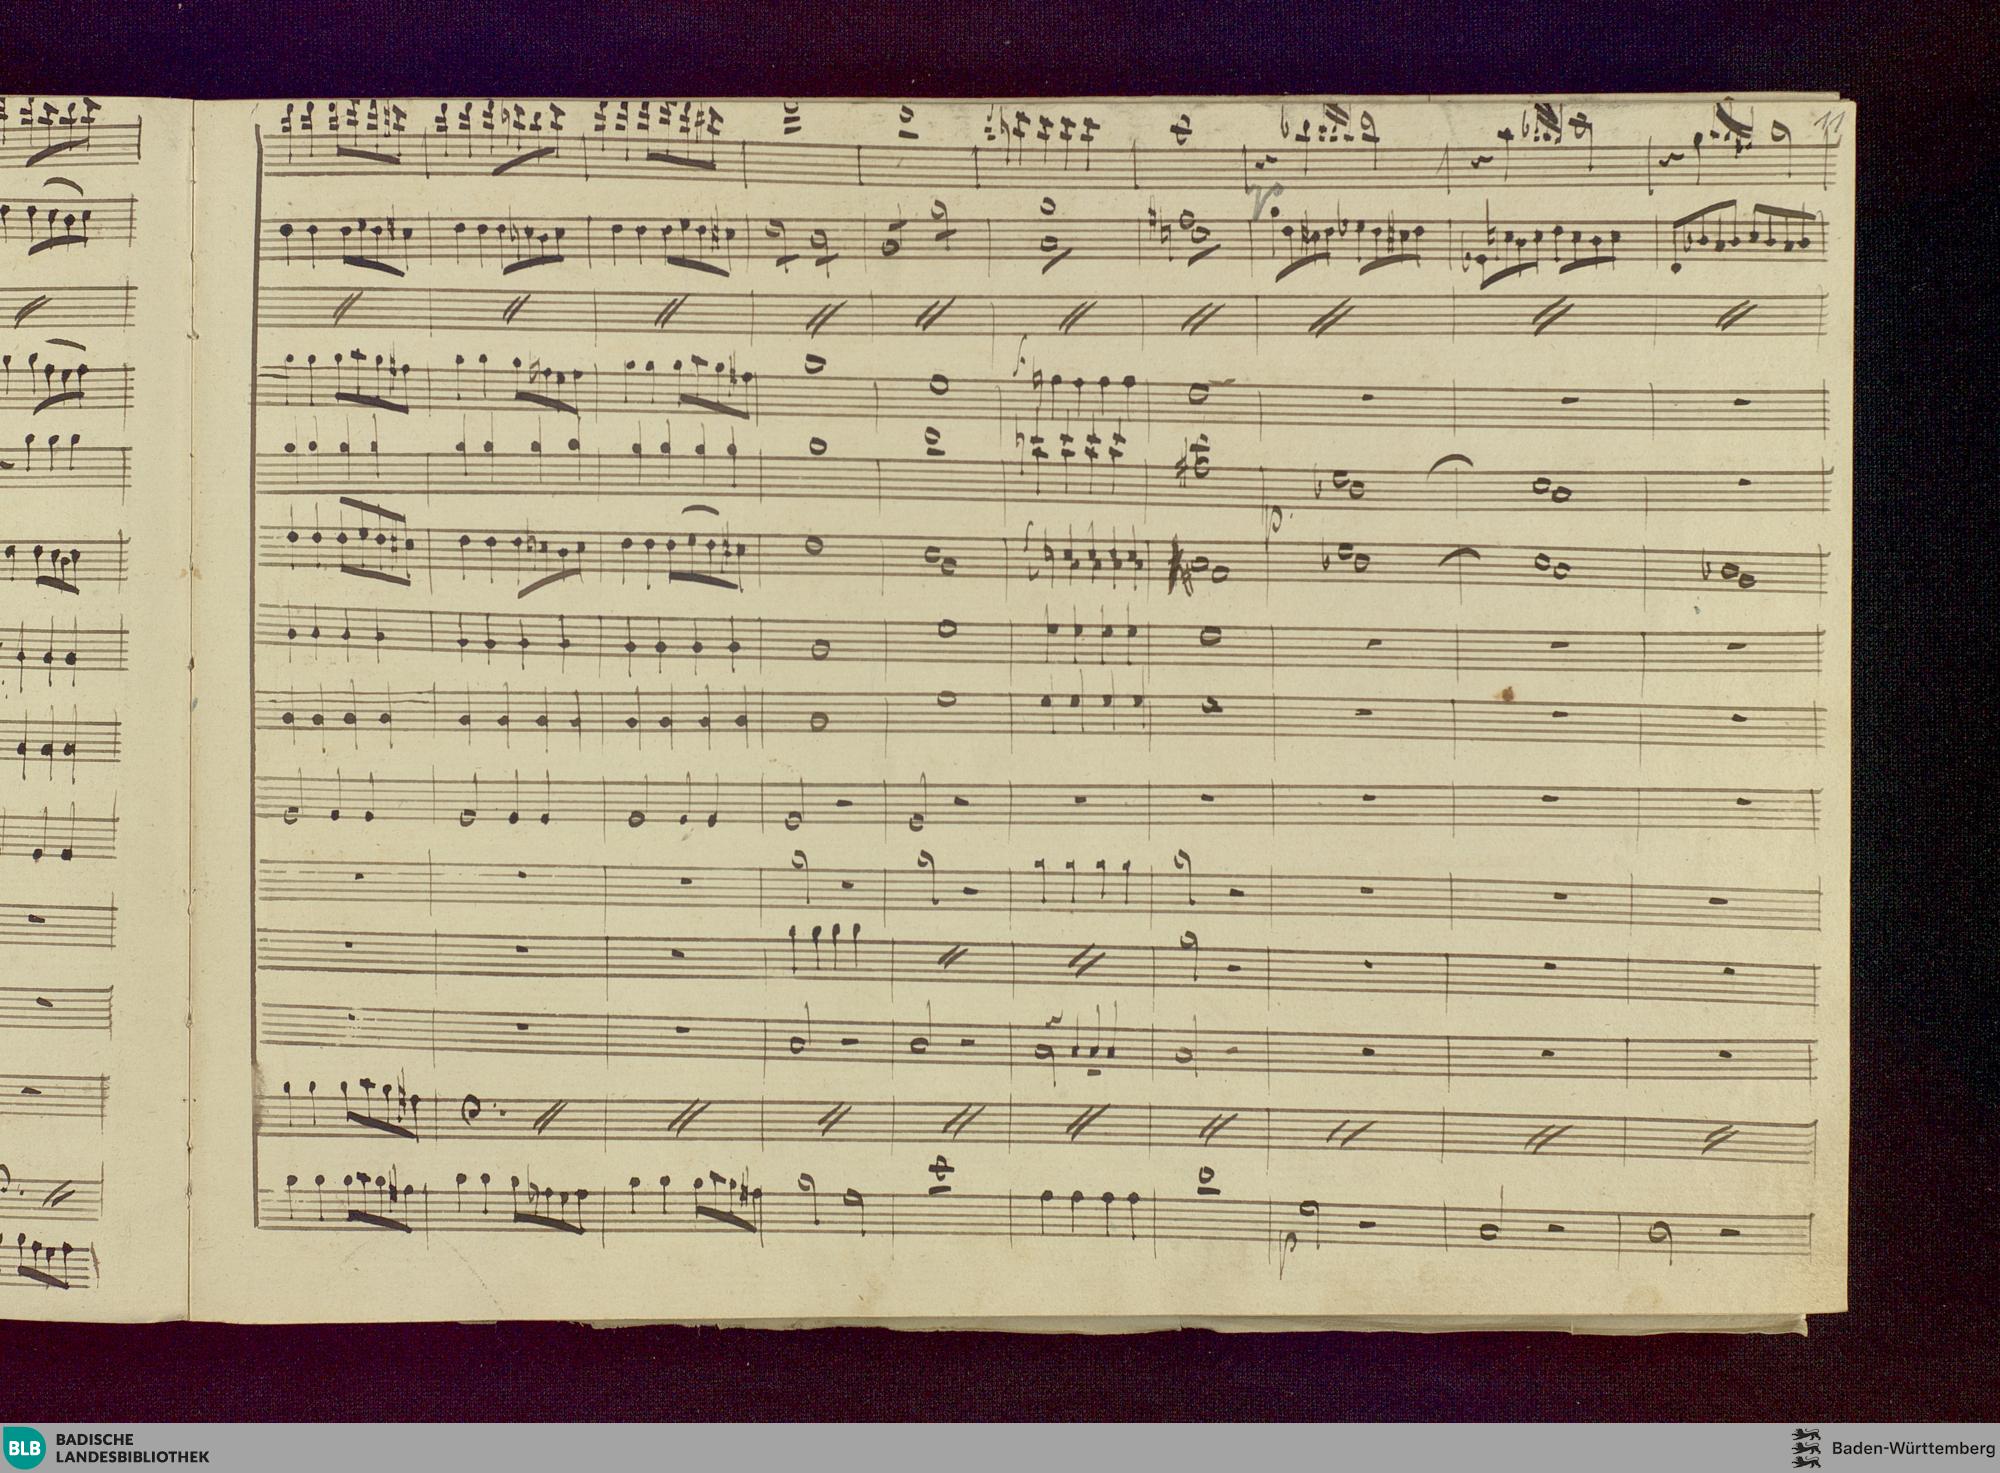 11
p
p
p
BLB BADISCHE
LANDESBIBLIOTHEK
Baden-Württemberg